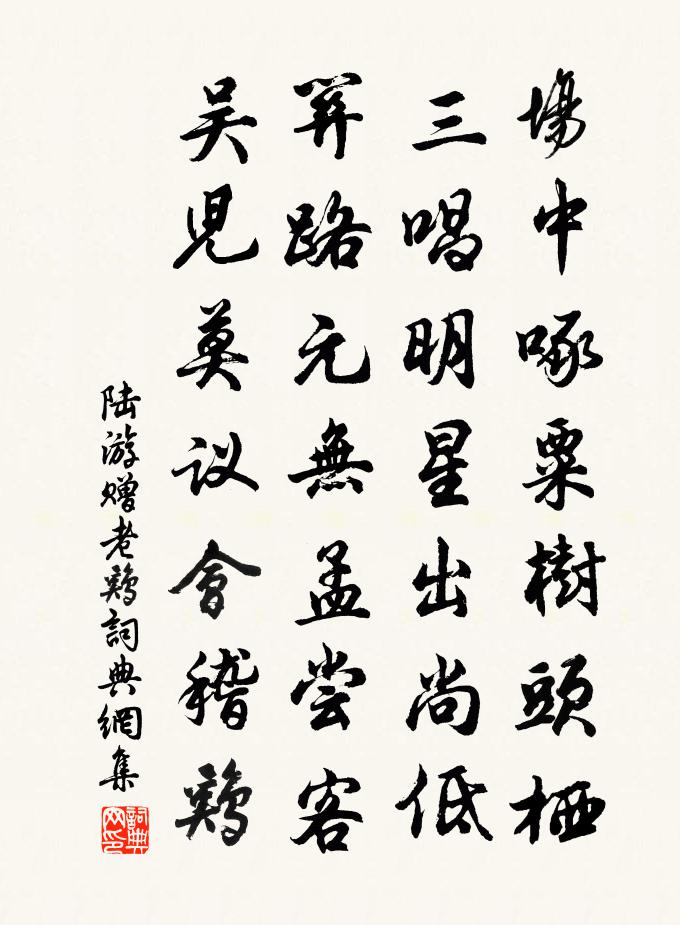 場中啄粟樹頭栖
三唱明星出尚低
筭路元無孟尝客
吴児莫议會稽鷄
陆游赠老鷄詞典網集
詞典网印